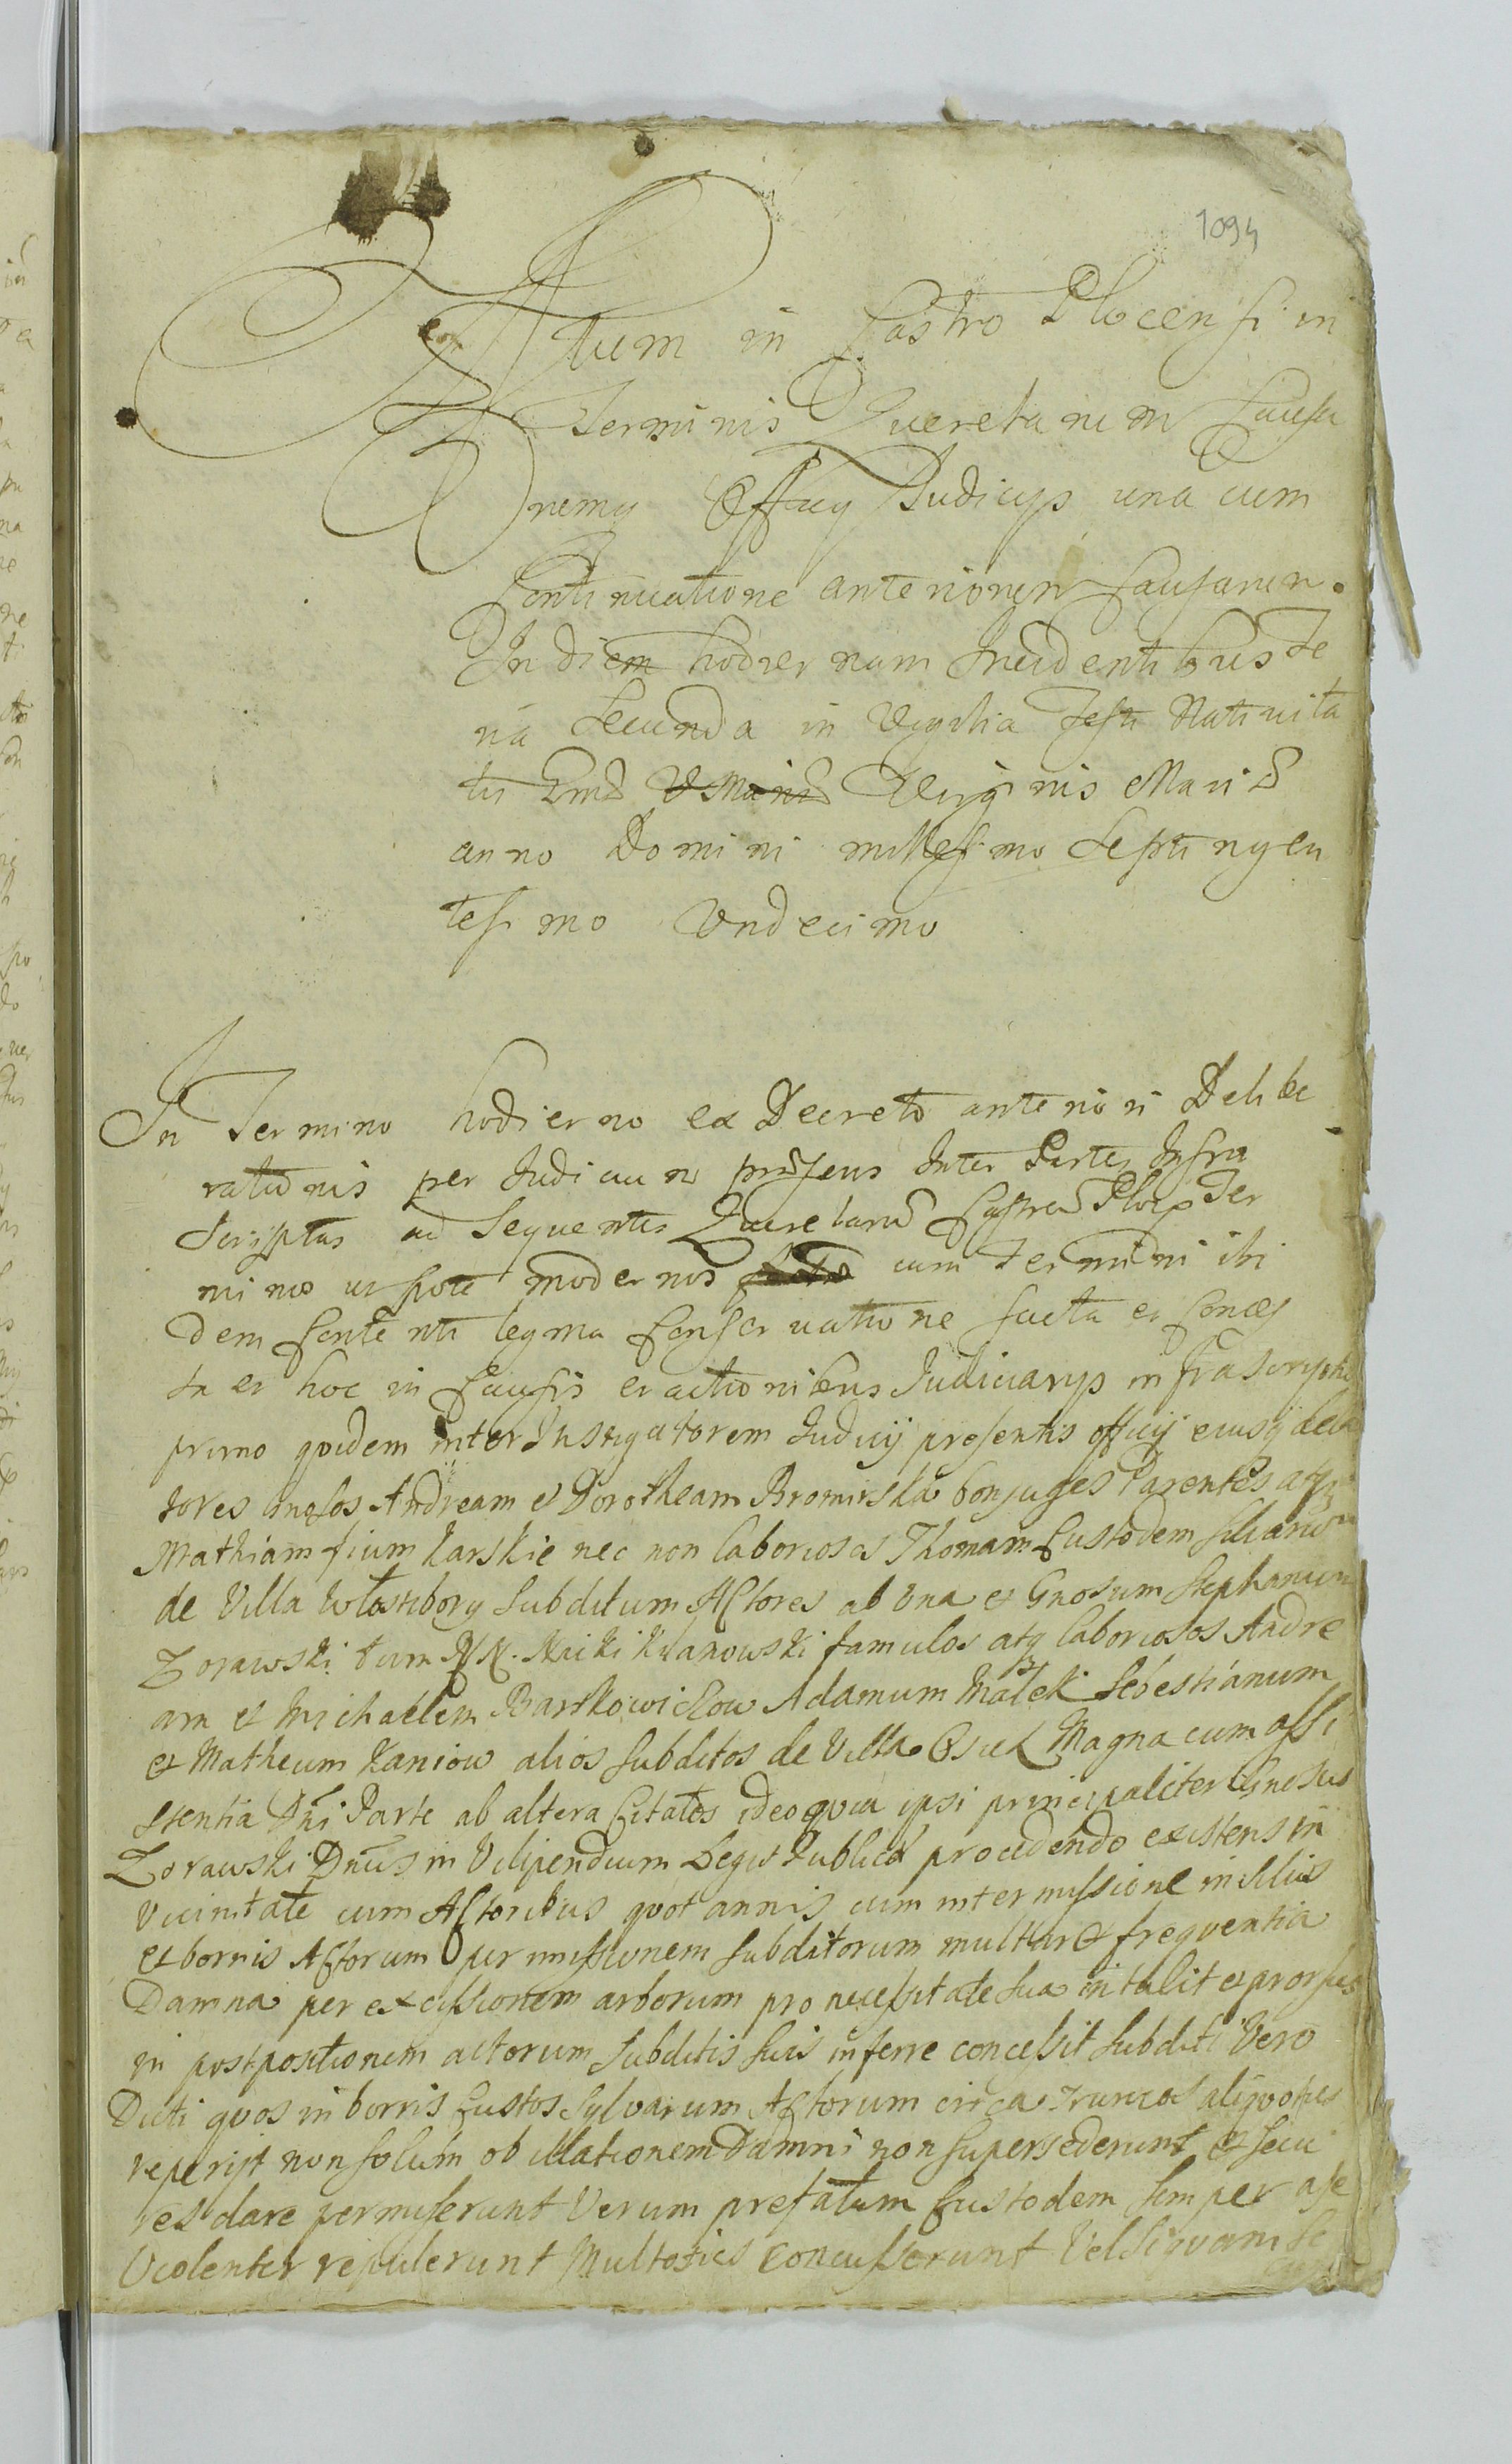 1094
Actum in Castro Plocensi in
Terminis Querelarum Causa
rumq Officy Judicys una cum
Continuatione anteriorum Causarum.
In diem hodiernam Incidentibus Fe
ria Secunda in Vigilia Festi Nativita
tis Virginis Mariæ
anno Domini millesimo Septingen
tesimo Undecimo
In Termino hodierno ex Decreto anteriori Delibe
rationis per Judicium præsens Inter Partes Infra
Scriptas ad Sequentes Querelarū Castren Plocen Ter
minos utpote modernos cum Termini ibi
dem Contenti legma Conservatione facta et
ta et hoc in Causis et actionibus Judiciarys infrascriptis
primo quidem inter Instigatorem Judicij presentis officij eiusq dela
tores Andream et Dorotheam Bromirskie Conjuges Parentes atq
Mathiam fium Karskie nec non laboriosos Thomam Custodem silvarum
de Villa Włostibory Subditum Actores ab una et Gnosum Stephanum
Zorawski tum NN. famulos atq laboriosos Andre
am et Michaëlem Bartkowiczow Adamum Małek Sebestianum
et Matheum Kaniow alios Subditos de Villa Osiek Magna cum assi
stentia Dni Parte ab altera Citatos ideo quia ipsi principaliter Gnosus
Zorawski Dnus in Vilipendium Legis Publicæ procedendo existens in
Vicinitate cum Actoribus quot annis cum intermissione in siluis
et borris Actorum per missionem subditorum multa et frequentia
Damna per excissionem arborum pro necessitate sua intulit et prorsus
in postpositionem actorum Subditis suis inferre concessit Subditi Vero
Dicti quos in borris Custos Sylvarum Actorum circa truncos aliquoties
reperijt non solum ob illationem Damni non supersederunt et secu
res dare permiserunt Verum prefatum Custodem semper a se
Violenter repulerunt Multoties concusserunt Vel siquam se